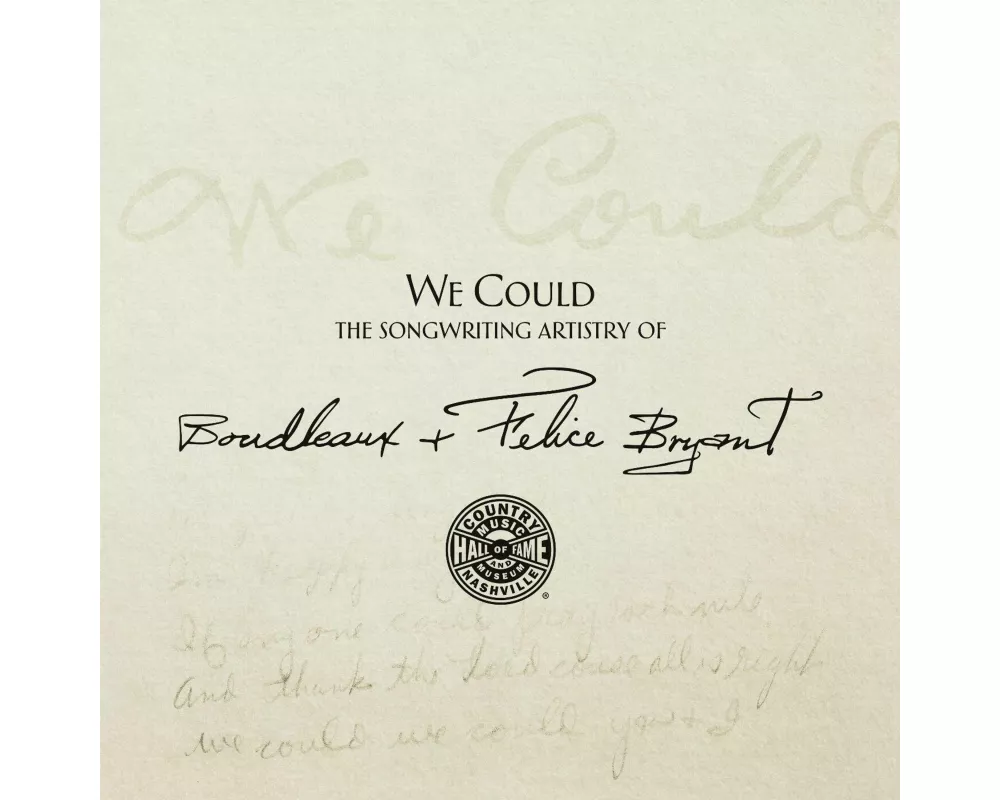 We Could
WE COULD
THE SONGWRITING ARTISTRY OF
Boudleaux + Felice Bryant
COUNTRY
MUSIC
HALL OF FAME
AND
MUSEUM
NASHVILLE
®
If anyone could
And thank the lord cause all is right
we could we could you + I